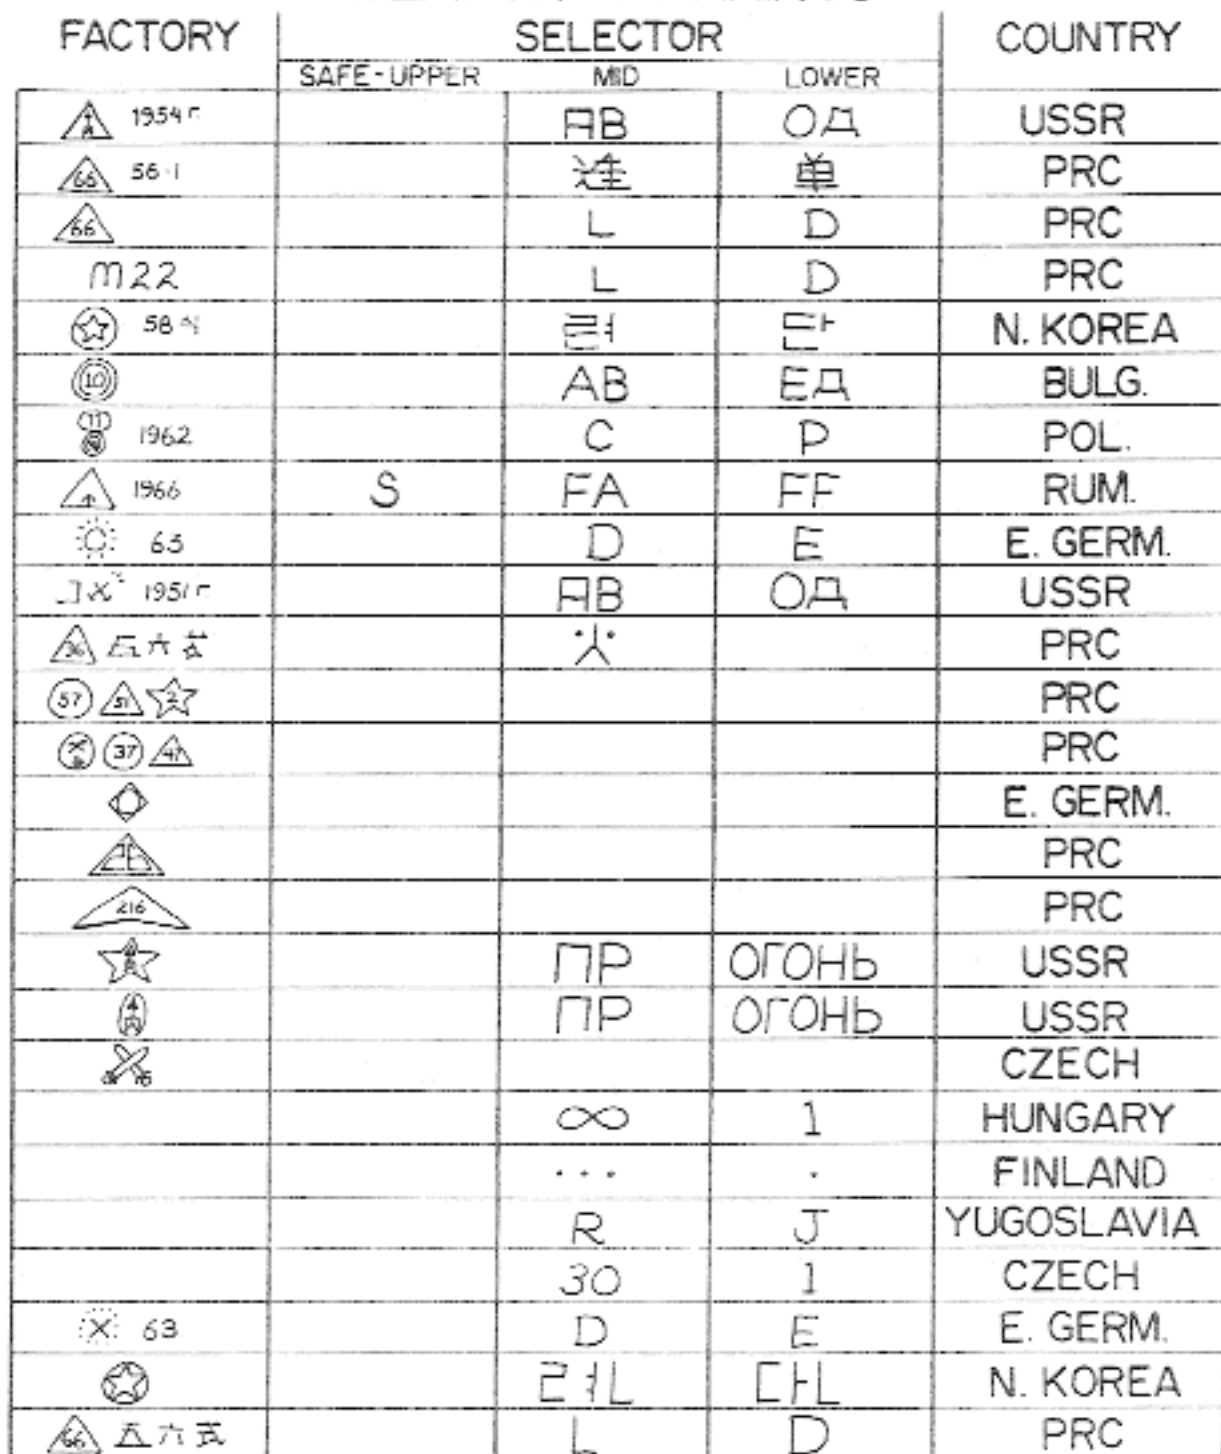 FACTORY SELECTOR COUNTRY
SAFE-UPPER MID LOWER
1954 г AB ОД USSR
66 56-1 连 单 PRC
66 L D PRC
M22 L D PRC
58 려 단 N. KOREA
10 AB ЕД BULG.
11 1962 C P POL.
1966 S FA FF RUM.
63 D E E. GERM.
1951 г AB ОД USSR
36 五六 PRC
57 51 2 PRC
37 47 PRC
E. GERM.
PRC
216 PRC
ПР ОГОНЬ USSR
ПР ОГОНЬ USSR
CZECH
∞ 1 HUNGARY
... . FINLAND
R J YUGOSLAVIA
30 1 CZECH
63 D E E. GERM.
련 단 N. KOREA
66 五六式 L D PRC